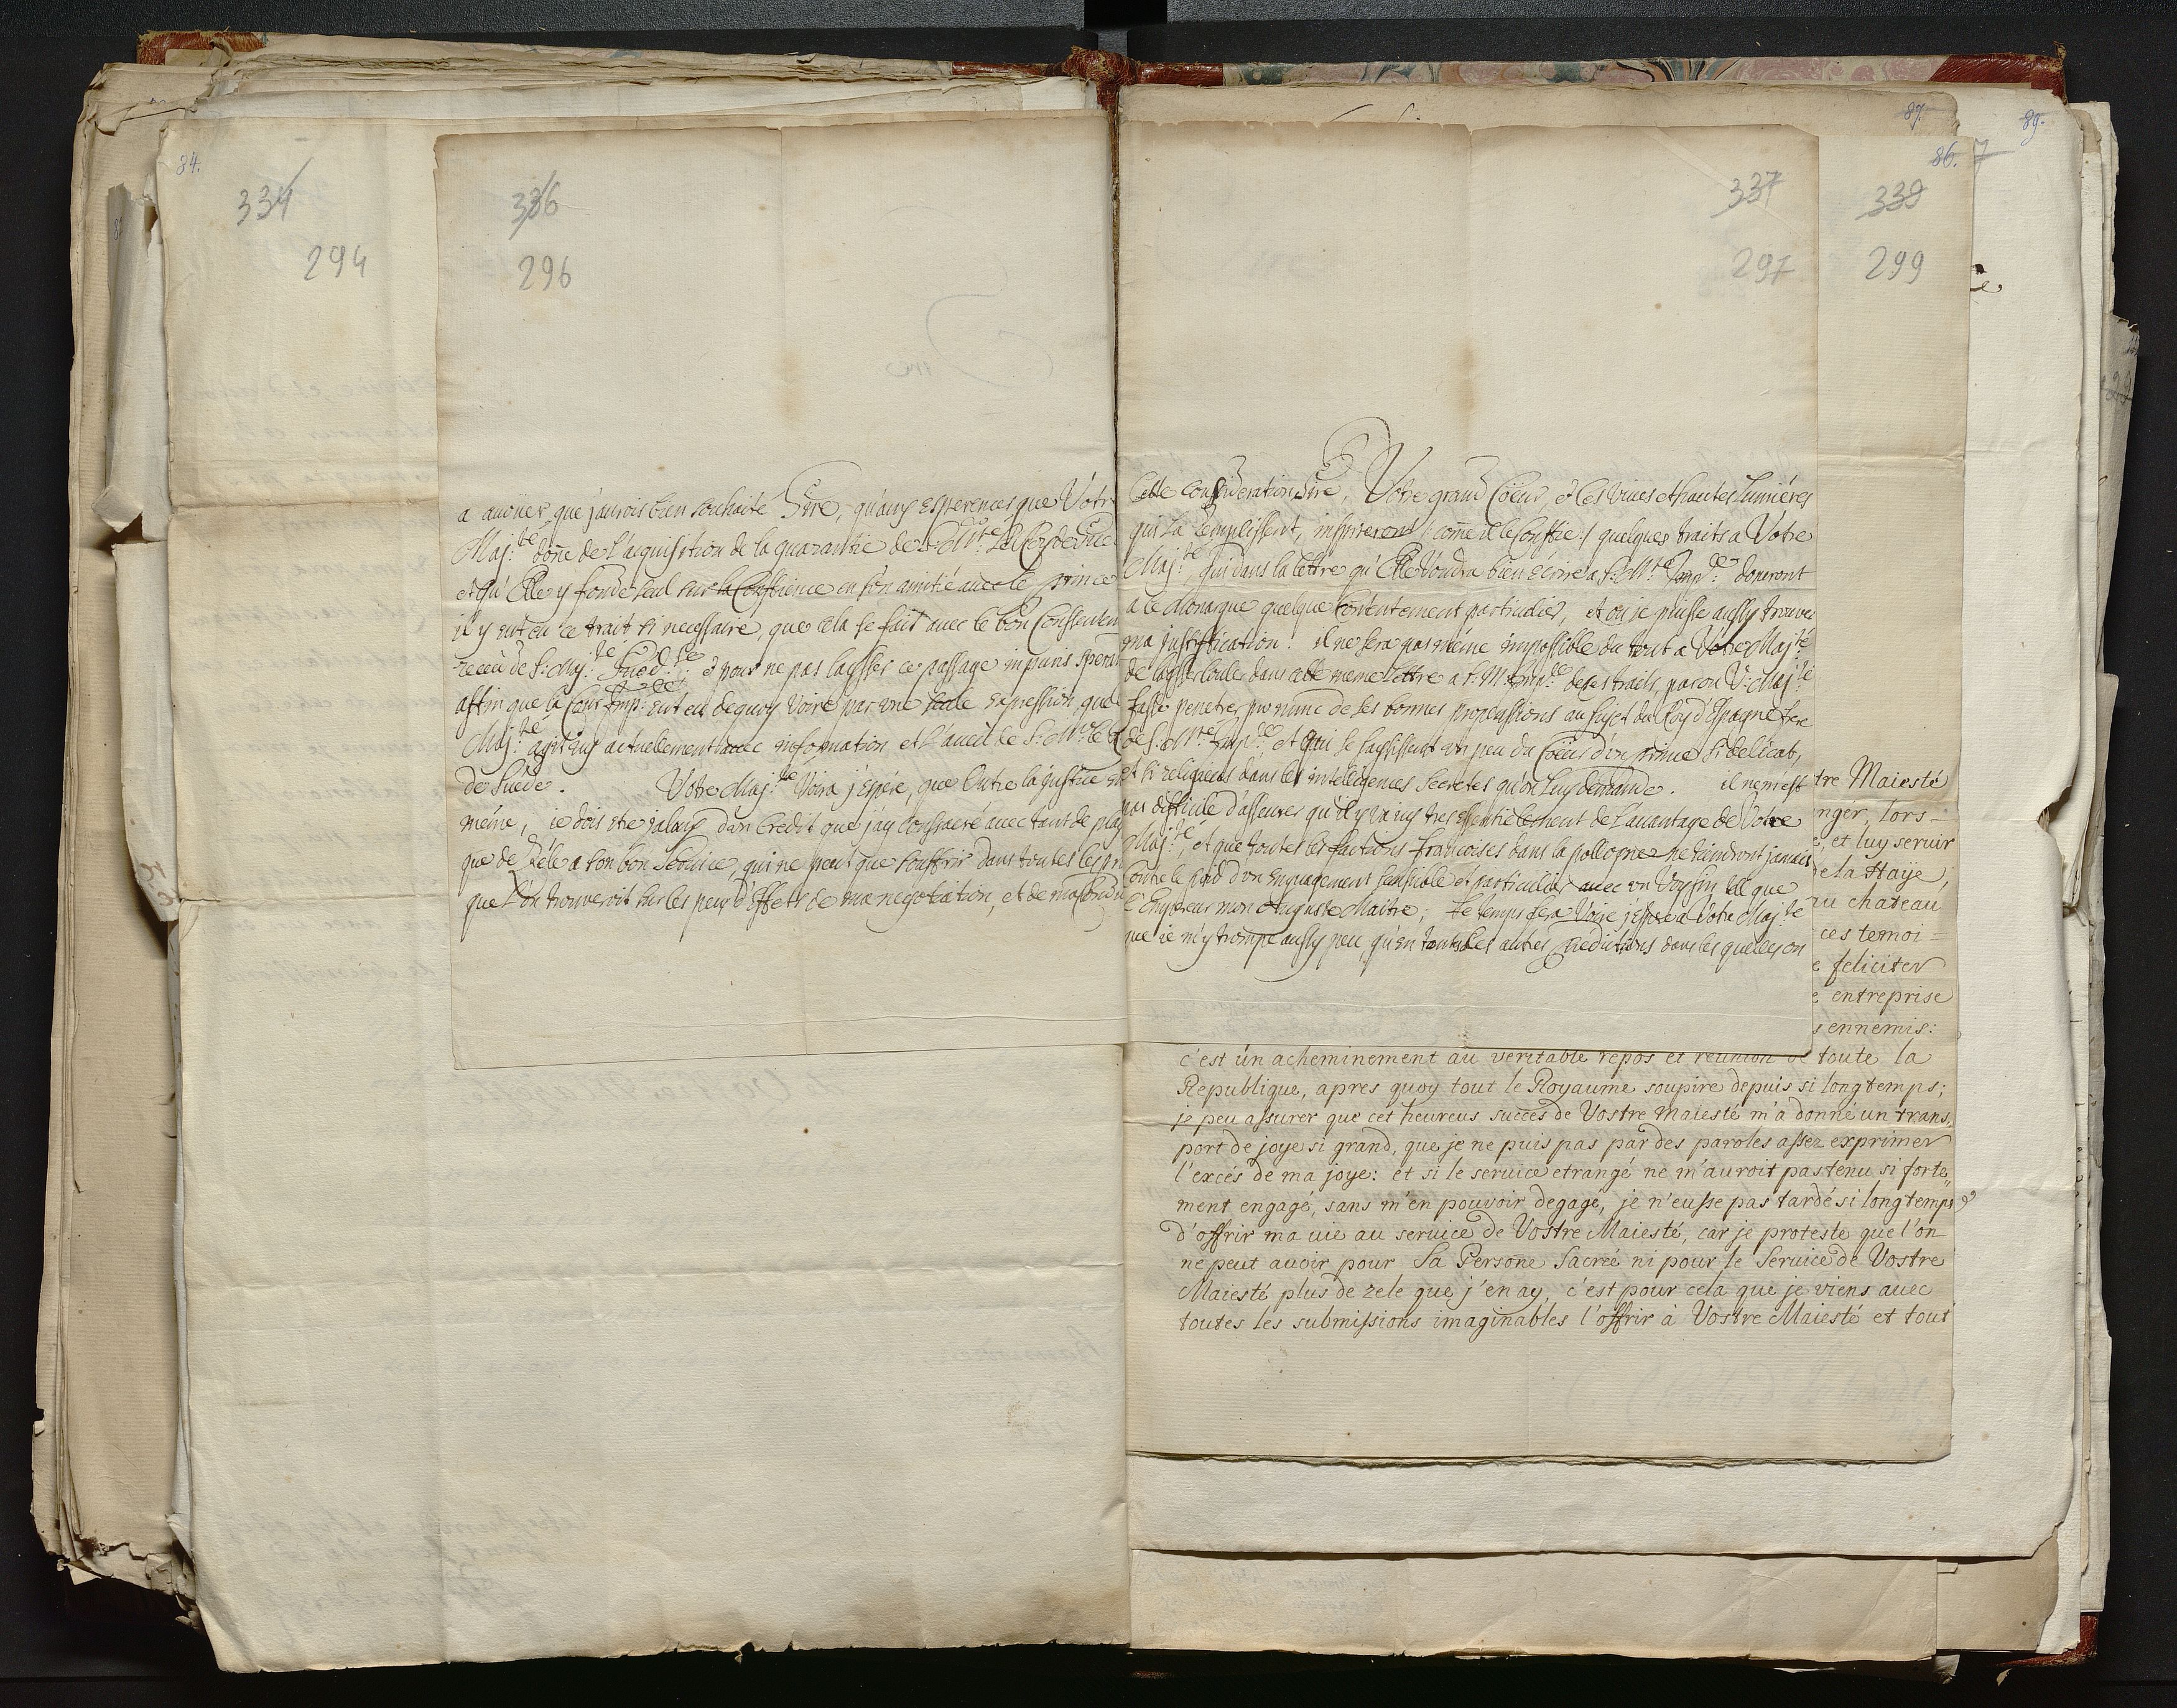 84.
334
294
336
296
a auoüer, que j'aurois bien souhaité Sire, qu'aux esperences que Votr
Maj.té done de l'acquisition de la garantie de S. M.té Le Roy de Sue
et qu'Elle y fonde seul sur la Consience en son amitié auec le prince
il y eut eu ce trait si necessaire, que cela se fait auec le bon Consenten
receu de S. Maj.té Sued.se, et pour ne pas laysser ce passage
affin que la Cour Imp.le eut eu dequoy Voire par une seule expression que
Maj.té agit icy actuellement auec information et l'aueü de S. M.té le R
de Suéde. Votre Maj.té Voira j'Espére, que Outre la justice
méme, ie dois etre jaloux d'un Credit que j'ay Consacré auec tant de plai
que de Zéle a son bon Seruice, qui ne peut que souffrir dans toutes les
que l'on trouveroit sur les peux d'Effets de ma negotiation, et de ma
87.
89.
86. 7
337
297
339
299
Cette consideration Sire, Votre grand Coeur, et les viues et hautes Lumiéres
qui La remplissent, inspireront /: come il le Conste :/ quelques traits a Votre
Maj.té, qui dans la lettre qu'Elle Voudra bien écrire a S. M.té Imp.le doneront
a ce Monarque quelque Contentement particulier, et ou je puisse aussy trouver
ma justification. il ne sera pas méme impossible du tout a Votre Maj.té
de laysser Couler dans cette meme Lettre a S. M. Imp.le de ses traits, par ou V. Maj.té
fasse penetrer de ses bonnes propensions au sujet du Roy d'Espagne frere
de S. M.té Imp.le, et qui se saysissent un peu du Coeur d'un prince si delicat,
et si religieux dans les intelligences Secretes qu'on Luy demande. il ne m'est
pas difficile d'asseurer qu'il y va icy tres essentielement de l'auantage de Votre
Maj.té, et que toutes les factions francoises dans la pollogne ne tiendront jamais
Contre le poid d'un engagement sensible et particulier auec un Voysin tel que
L'Empereur mon Auguste Maitre; Le temps fera Voire j'espere a Votre Maj.té
que ie m'y trompe aussy peu, qu'en toutes les autres predictions dans les quelles on
tre Maiesté
nger, lors-
, et luy seruir
de la Haÿe,
au chateau
ces temoi=
e feliciter
e entreprise
s ennemis:
c'est un acheminement au veritable repos et reünion de toute la
Republique, apres quoy tout le Royaume soupire depuis si longtemps;
je peu assurer que cet heureus succes de Vostre Maiesté m'a donné un trans„
port de joye si grand, que je ne puis pas par des paroles assez exprimer
l'excés de ma joye: et si le seruice etrangé ne m'auroit pas tenu si forte„
ment engagé, sans m'en pouvoir degagé, je n'eusse pas tardé si longtemps
d'offrir ma uie au seruice de Vostre Maiesté, car je proteste que l'on
ne peut auoir pour Sa Persone Sacreé ni pour le Seruice de Vostre
Maiesté plus de zele que j'en ay, c'est pour cela que je viens auec
toutes les submissions imaginables l'offrir à Vostre Maiesté et tout